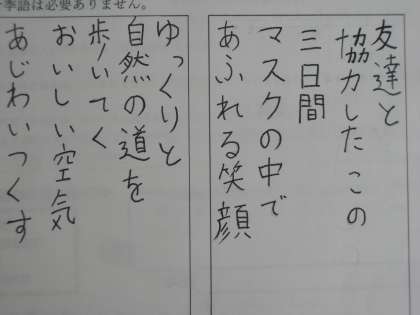 季語は必要ありません。
友達と
協力したこの
三日間
マスクの中で
あふれる笑顔
ゆっくりと
自然の道を
歩いてく
おいしい空気
あじわいつくす